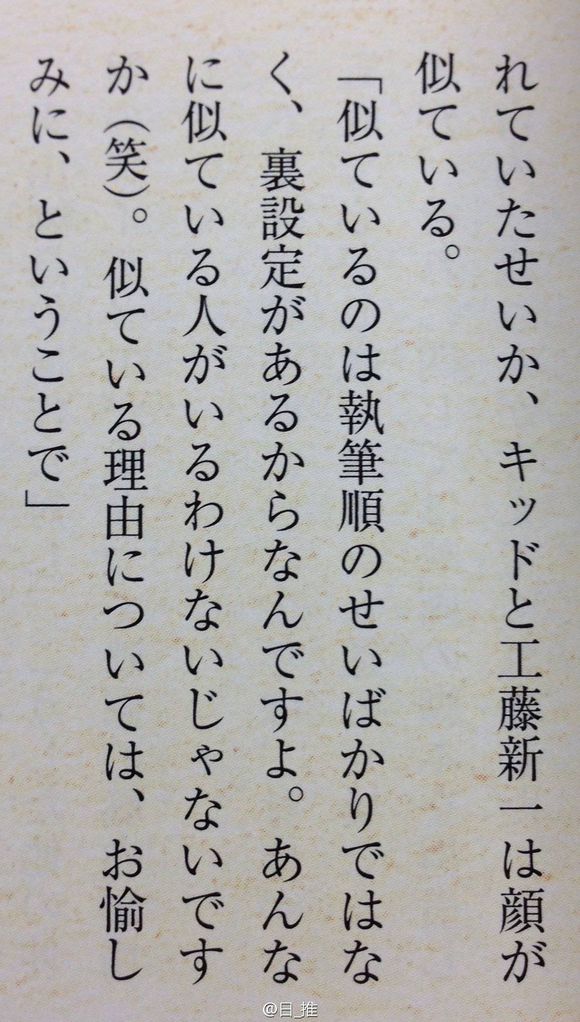 れていたせいか、キッドと工藤新一は顔が
似ている。
「似ているのは執筆順のせいばかりではな
く、裏設定があるからなんですよ。あんな
に似ている人がいるわけないじゃないです
か（笑）。似ている理由については、お愉し
みに、ということで」
@目_推